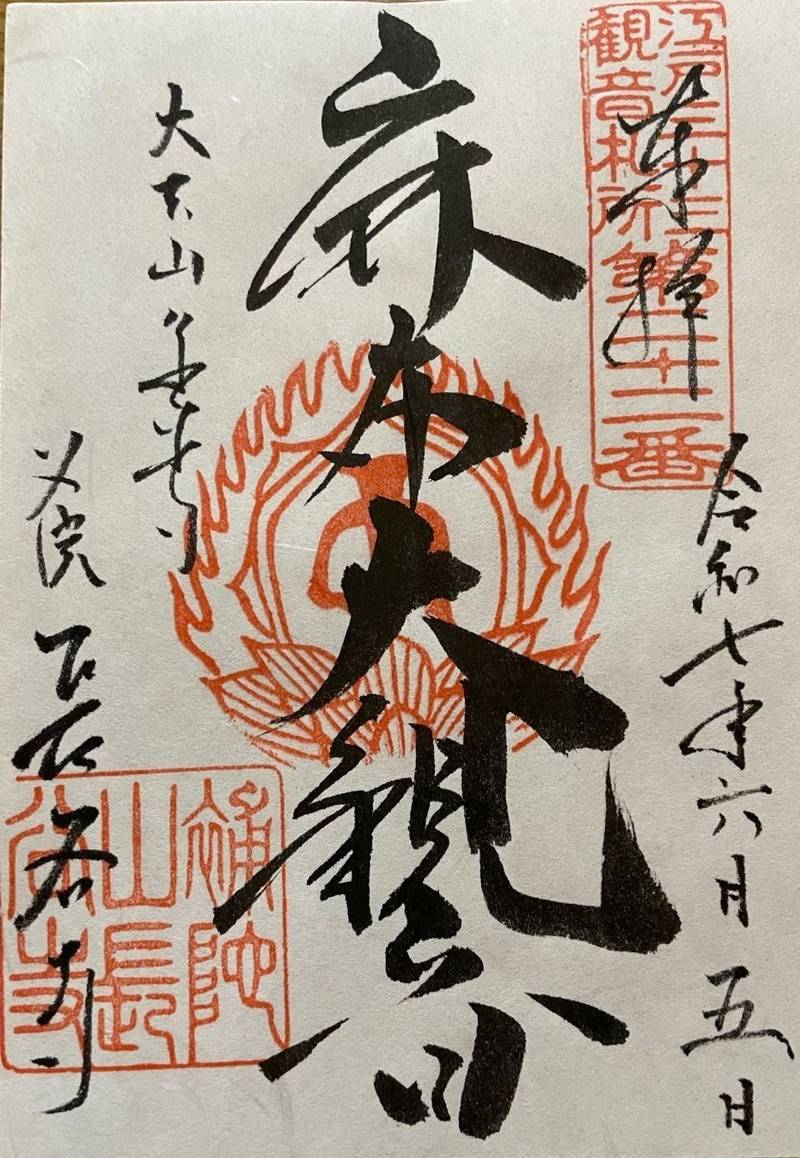 江戸三十三
観音札所第二十二番
奉拝
令和七年六月五日
麻布大観音
大本山永平寺
別院 長谷寺
補陀
山長
谷寺